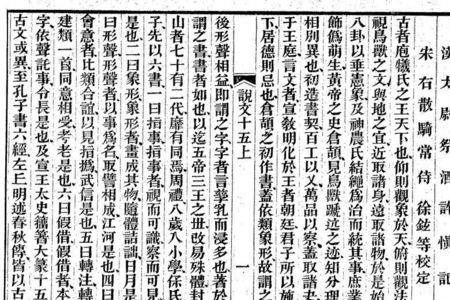 漢太尉祭酒許慎記
宋右散騎常侍徐鉉等校定
古者庖犧氏之王天下也仰則觀象於天俯則觀
視鳥獸之文與地之宜近取諸身遠取諸物於是始
八卦以垂憲象及神農氏結繩為治而統其事庶業
飾偽萌生黃帝之史倉頡見鳥獸蹏迒之迹知分理
相別異也初造書契百工以乂萬品以察蓋取諸夬
于王庭言文者宣教明化於王者朝廷君子所以施
下居德則忌也倉頡之初作書蓋依類象形故謂之
說文十五上
一
後形聲相益即謂之字字者言孳乳而浸多也著於
謂之書書者如也以迄五帝三王之世改易殊體封
山者七十有二代靡有同焉周禮八歲入小學保氏
子先以六書一曰指事指事者視而可識察而可
是也二曰象形象形者畫成其物隨體詰詘日月是
曰形聲形聲者以事為名取譬相成江河是也四曰
會意者比類合誼以見指撝武信是也五曰轉注
建類一首同意相受考老是也六曰假借假借者本
字依聲託事令長是也及宣王太史籀著大篆十五
古文或異至孔子書六經左丘明述春秋傳皆以古